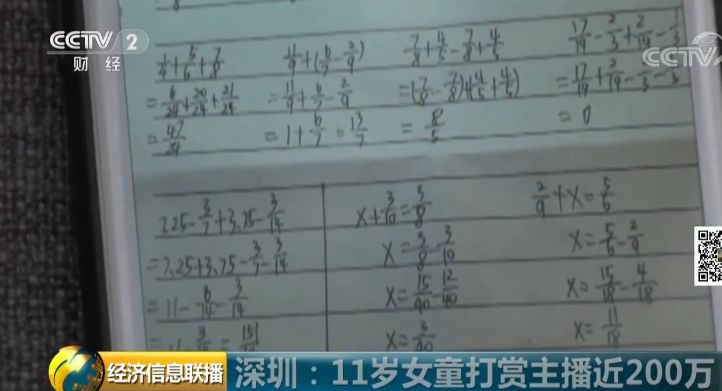 CCTV 2
财经
CCTV
1/4+5/6+7/8
=6/24+20/24+21/24
=47/24
11/9+(6/7-2/9)
=11/9+6/7-2/9
=1+6/7=13/7
7/8+4/5-7/8+4/5
=(7/8-7/8)+(4/5+4/5)
=8/5
=0
7.25-3/7+3.75-3/14
=7.25+3.75-3/7-3/14
=11-6/14-3/14
x+3/10=5/8
x=5/8-3/10
x=15/40 12/40
x=3/40
2/9+x=5/6
x=5/6-2/9
x=15/18-4/18
x=11/18
经济信息联播
深圳：11岁女童打赏主播近200万